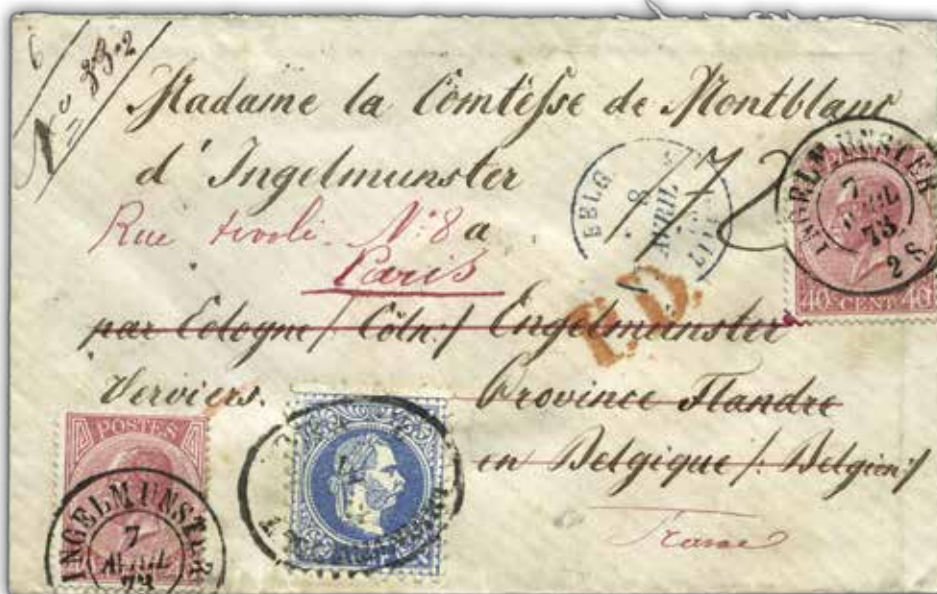 6
No 33.2
Madame la Comtesse de Montblanc
d'Ingelmunster
Rue tivoli. No 8 a
Paris
par Cologne /: Cöln :/ Engelmunster
Verviers.
Province Flandre
en Belgique /: Belgien :/
France
BELG
8
AVRIL
P.D.
INGELMUNSTER
7
AVRIL
73
2 S.
40 CENT 40
POSTES
INGELMUNSTER
7
AVRIL
73